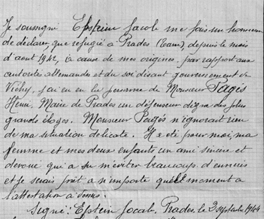 Je soussigné Epstein Jacob me fais un honneur
de déclarer que réfugié à Prades (Tarn), depuis le mois
d'août 1942, à cause de mes origines, par rapport aux
autorités allemandes et du soi disant gouvernement de
Vichy, j'ai eu en la personne de Monsieur Pagès
Henri, Maire de Prades un défenseur digne des plus
grands éloges. Monsieur Pagès n'ignorait rien
de ma situation délicate. Il a été pour moi, ma
femme et mes deux enfants un ami sincère et
dévoué qui a su m'éviter beaucoup d'ennuis
et je serais prêt à n'importe quel moment à
l'attestation à
Signé: Epstein Jacob, Prades, le 3 septembre 1944